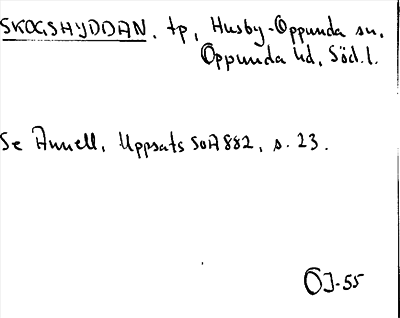 SKOGSHYDDAN. tp, Husby-Oppunda sn,
Oppunda hd, Söd.l.
Se Annell, Uppsats SOA 882, s. 23.
ÖJ-55